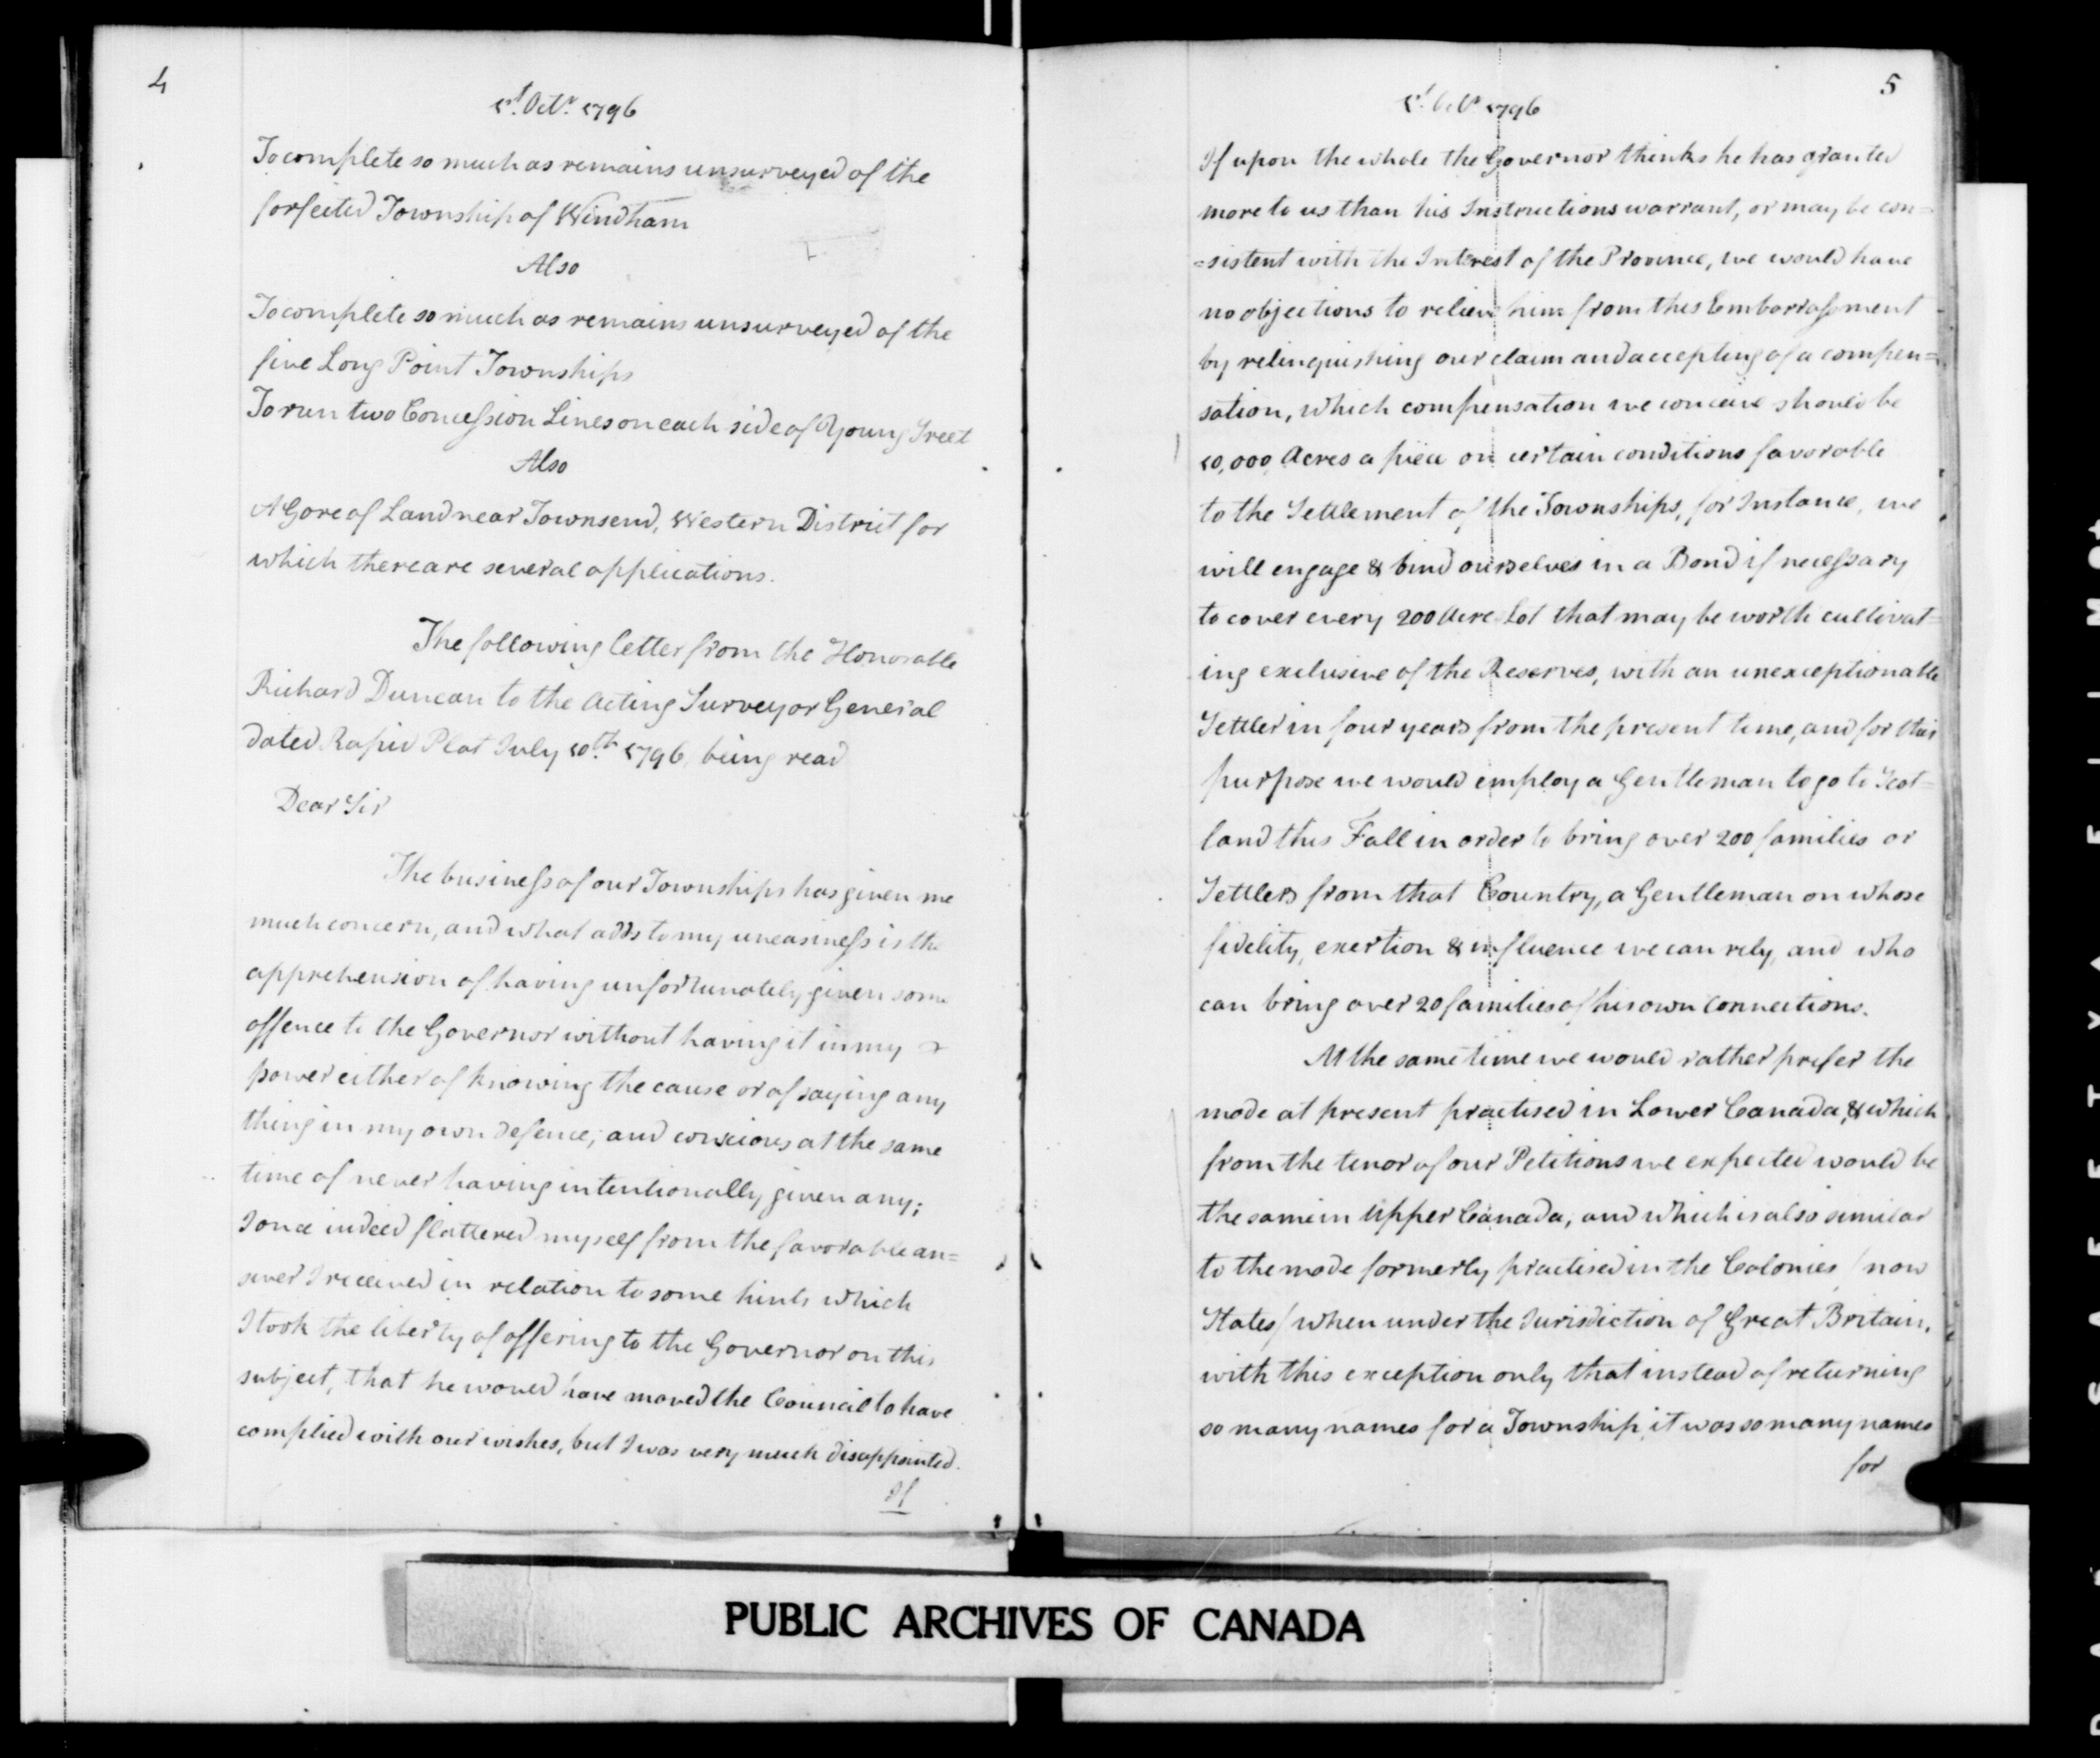 4
1st. Octr. 1796
To complete so much as remains unsurveyed of the
forfeited Township of Windham
Also
To complete so much as remains unsurveyed of the
five Long Point Townships
To run two Concession Lines on each side of Young Sreet
Also
A Gore of Land near Townsend, Western District for
which there are several applications.
The following letter from the Honorable
Richard Duncan to the Acting Surveyor General
dated Rapid Plat July 10th. 1796, being read
Dear Sir
The business of our Townships has given me
much concern, and what adds to my uneasiness is the
apprehension of having unfortunately given some
offence to the Governor without having it in my
power either of knowing the cause or of saying any
thing in my own defence, and conscious at the same
time of never having intentionally given any;
I once indeed flattered myself from the favorable an=
swer I received in relation to some hints which
I took the liberty of offering to the Governor on this
subject, that he would have moved the Council to have
complied with our wishes, but I was very much disappointed.
If
5
1st. Octr 1796
If upon the whole the Governor thinks he has granted
more to us than his Instructions warrant, or may be con=
=sistent with the Interest of the Province, we would have
no objections to relieve him from this Embarrassment
by relinquishing our claim and accepting of a compen=
sation, which compensation we conceive should be
10,000 Acres a piece on certain conditions favorable
to the Settlement of the Townships, for Instance, we
will engage & bind ourselves in a Bond if necessary
to cover every 200 Acre Lot that may be worth cultivat=
ing exclusive of the Reserves, with an unexceptionable
Settler in four years from the present time, and for this
purpose we would employ a Gentleman to go to Scot=
land this Fall in order to bring over 200 families or
Settlers from that Country, a Gentleman on whose
fidelity, exertion & influence we can rely, and who
can bring over 20 families of his own connections.
At the same time we would rather prefer the
mode at present practised in Lower Canada, & which
from the tenor of our Petitions we expected would be
the same in Upper Canada, and which is also similar
to the mode formerly practised in the Colonies / now
States / when under the Jurisdiction of Great Britain,
with this exception only that instead of returning
so many names for a Township, it was so many names
for
PUBLIC ARCHIVES OF CANADA